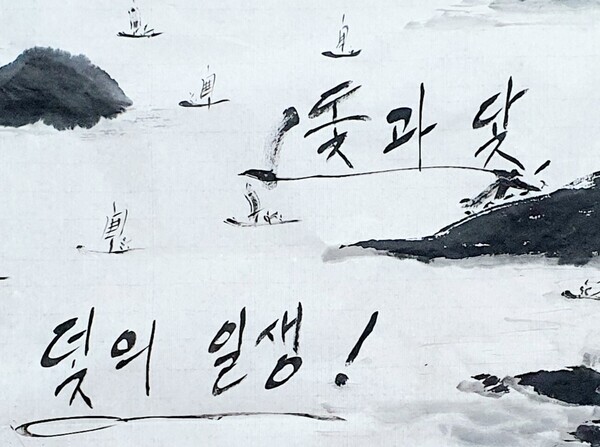 돛과 닻
덫의 일생!